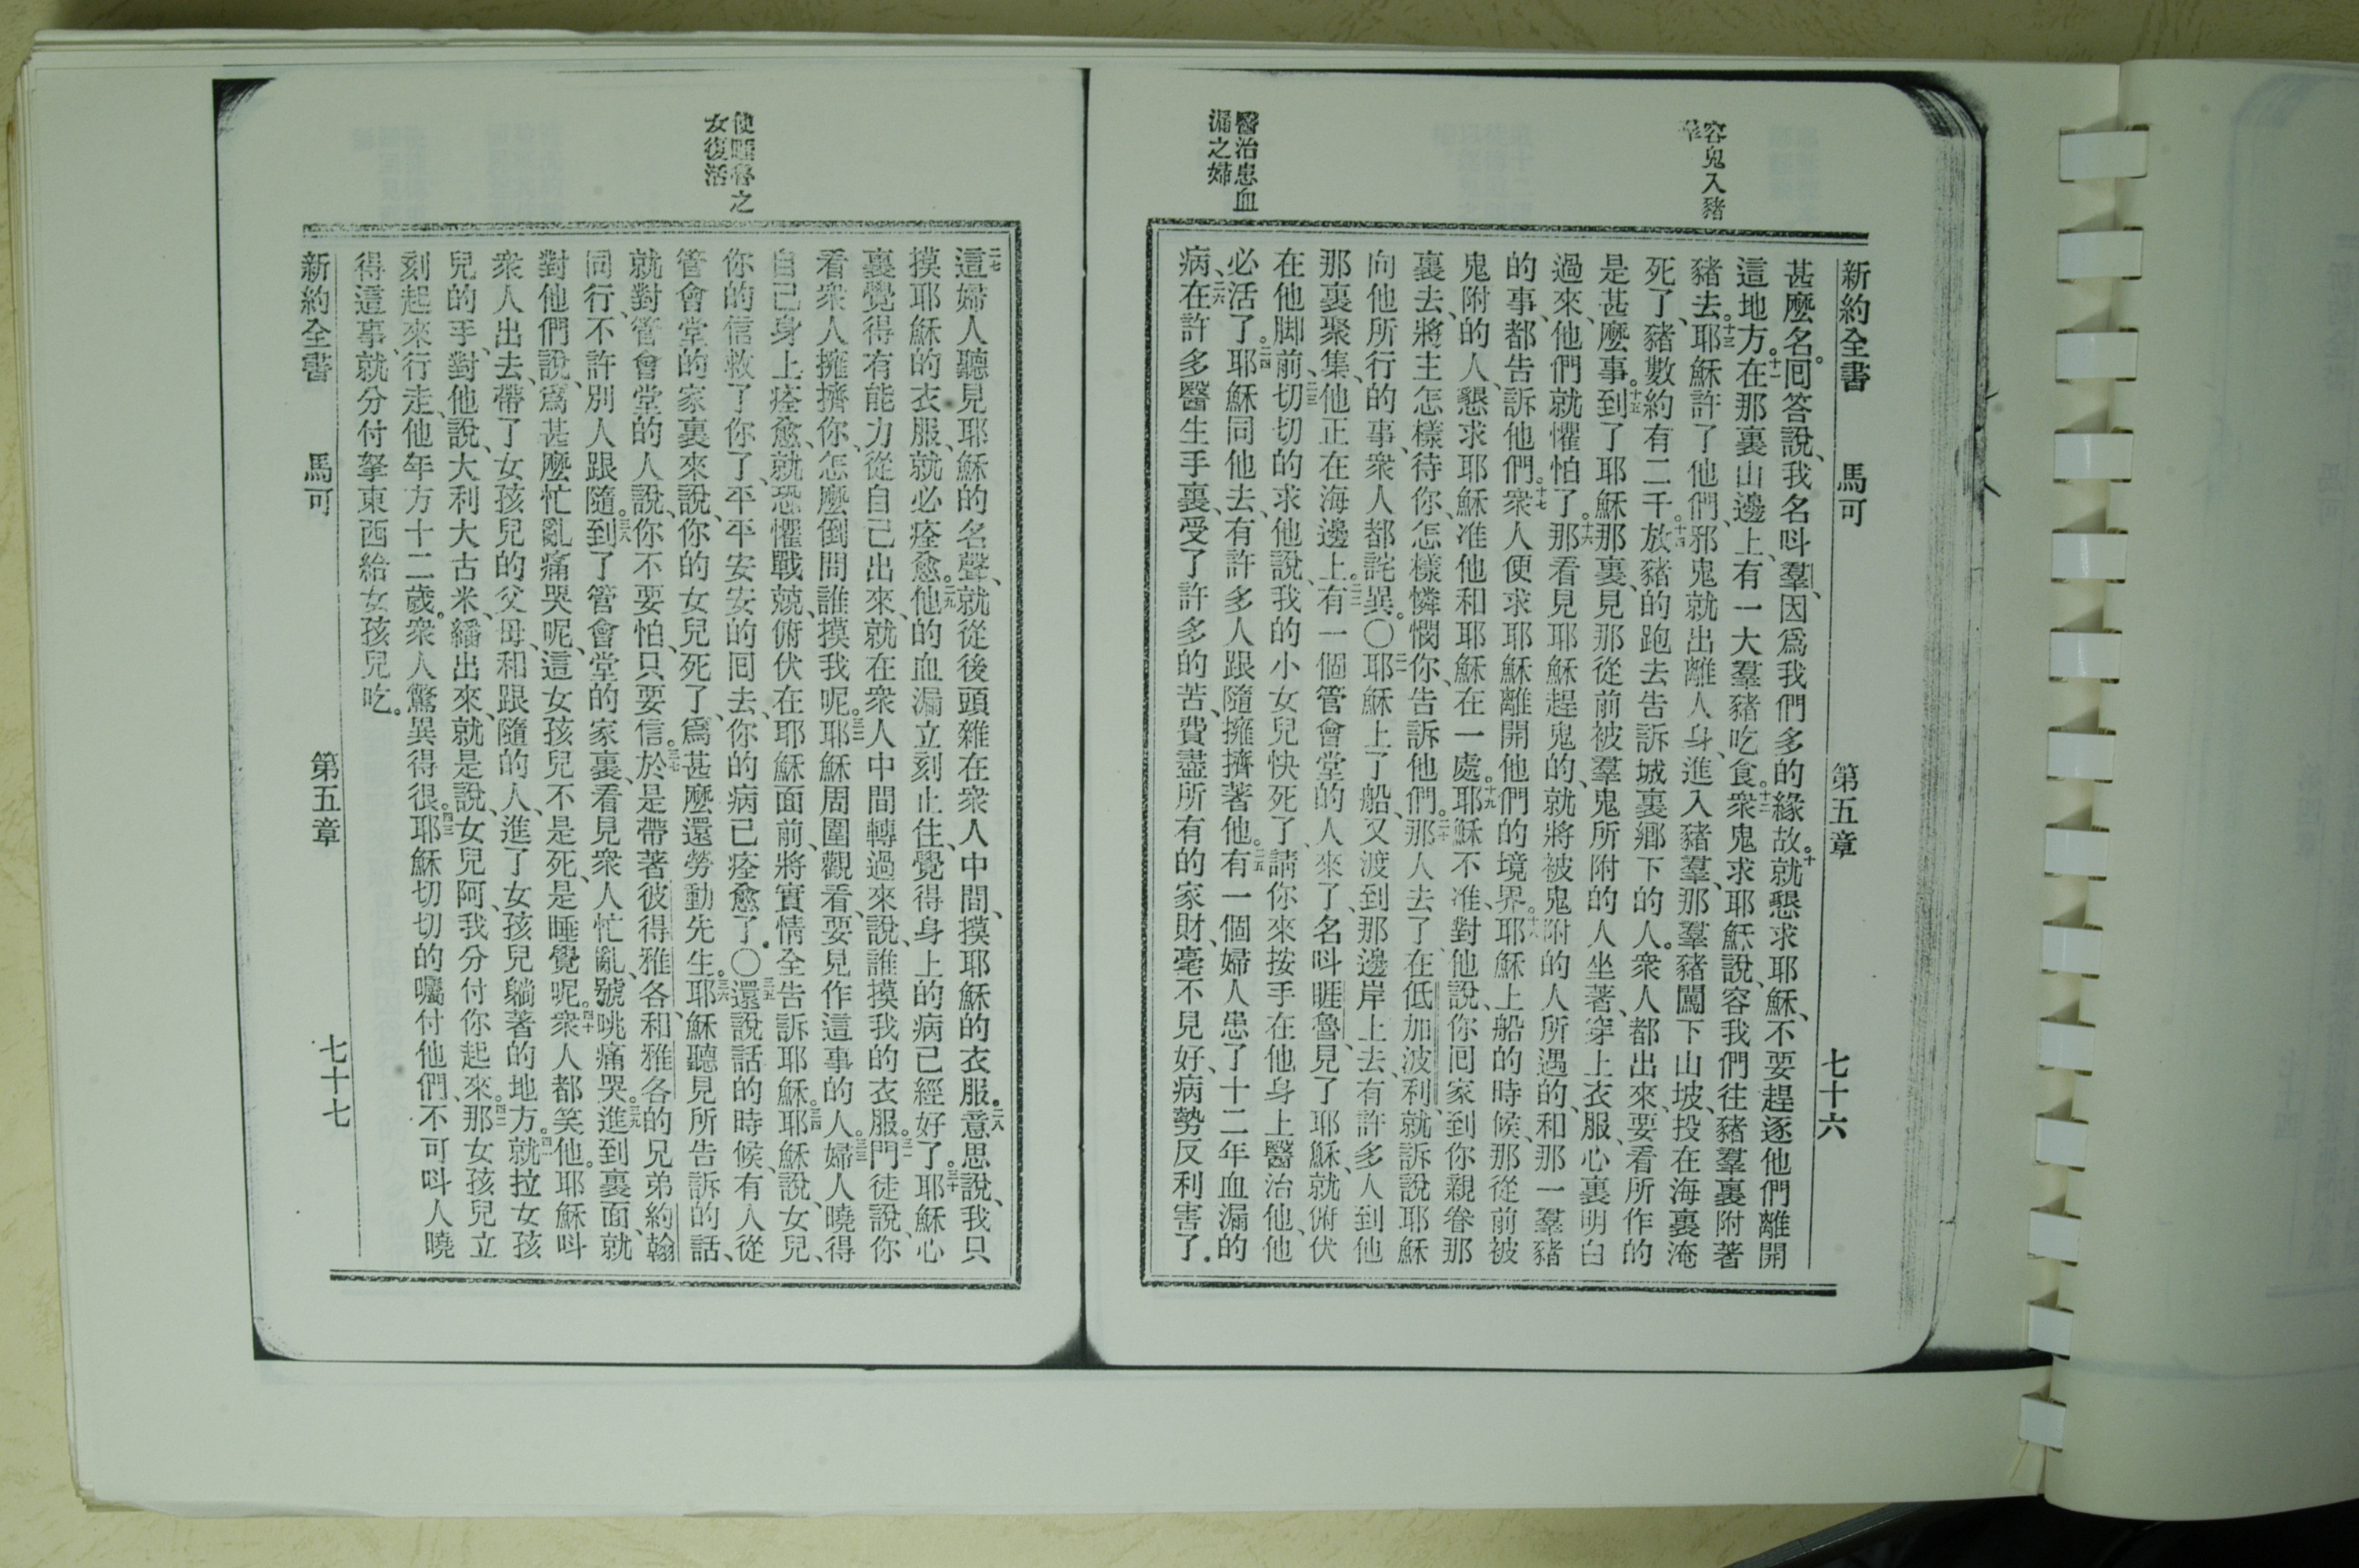 容鬼入豬
羣
醫治患血
漏之婦
新約全書 馬可 第五章 七十六
甚麼名。回答說、我名呌羣、因爲我們多的緣故。十就懇求耶穌、不要趕逐他們離開
這地方。十一在那裏山邊上、有一大羣豬吃食。十二衆鬼求耶穌說、容我們往豬羣裏附著
豬去。十三耶穌許了他們、邪鬼就出離人身、進入豬羣、那羣豬闖下山坡、投在海裏淹
死了、豬數約有二千。十四放豬的跑去告訴城裏鄉下的人。衆人都出來、要看所作的
是甚麼事。十五到了耶穌那裏、見那從前被羣鬼所附的人坐著、穿上衣服、心裏明白
過來、他們就懼怕了。十六那看見耶穌趕鬼的、就將被鬼附的人所遇的、和那一羣豬
的事、都告訴他們。十七衆人便求耶穌離開他們的境界。十八耶穌上船的時候、那從前被
鬼附的人、懇求耶穌准他和耶穌在一處。十九耶穌不准、對他說、你回家到你親眷那
裏去、將主怎樣待你、怎樣憐憫你、告訴他們。二十那人去了、在低加波利、就訴說耶穌
向他所行的事、衆人都詫異。〇二一耶穌上了船、又渡到那邊岸上去、有許多人到他
那裏聚集、他正在海邊上。二二有一個管會堂的人來了、名呌睚魯、見了耶穌、就俯伏
在他脚前、二三切切的求他說、我的小女兒快死了、請你來按手在他身上醫治他、他
必活了。二四耶穌同他去、有許多人跟隨擁擠著他。二五有一個婦人患了十二年血漏的
病、二六在許多醫生手裏、受了許多的苦、費盡所有的家財、毫不見好、病勢反利害了。
使睚魯之
女復活
二七這婦人聽見耶穌的名聲、就從後頭雜在衆人中間、摸耶穌的衣服。二八意思說、我只
摸耶穌的衣服、就必痊愈。二九他的血漏立刻止住、覺得身上的病已經好了。三十耶穌心
裏覺得有能力從自己出來、就在衆人中間轉過來說、誰摸我的衣服。三一門徒說、你
看衆人擁擠你、怎麼倒問誰摸我呢。三二耶穌周圍觀看、要見作這事的人。三三婦人曉得
自己身上痊愈、就恐懼戰兢、俯伏在耶穌面前、將實情全告訴耶穌。三四耶穌說、女兒、
你的信救了你了、平平安安的回去、你的病已痊愈了。〇三五還說話的時候、有人從
管會堂的家裏來說、你的女兒死了、爲甚麼還勞動先生。三六耶穌聽見所告訴的話、
就對管會堂的人說、你不要怕、只要信。三七於是帶著彼得雅各、和雅各的兄弟約翰
同行、不許別人跟隨。三八到了管會堂的家裏、看見衆人忙亂、號咷痛哭。三九進到裏面、就
對他們說、爲甚麼忙亂痛哭呢、這女孩兒不是死、是睡覺呢。四十衆人都笑他。耶穌呌
衆人出去、帶了女孩兒的父母、和跟隨的人、進了女孩兒躺著的地方。四一就拉女孩
兒的手、對他說、大利大古米、繙出來、就是說、女兒阿、我分付你起來。四二那女孩兒立
刻起來行走、他年方十二歲。衆人驚異得很。四三耶穌切切的囑付他們、不可呌人曉
得這事、就分付拏東西給女孩兒吃。
新約全書 馬可 第五章 七十七